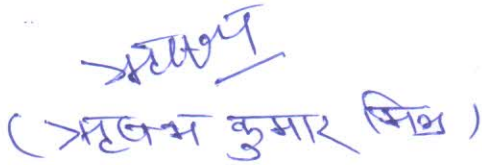 ऋषभ
(ऋषभ कुमार मिश्र)